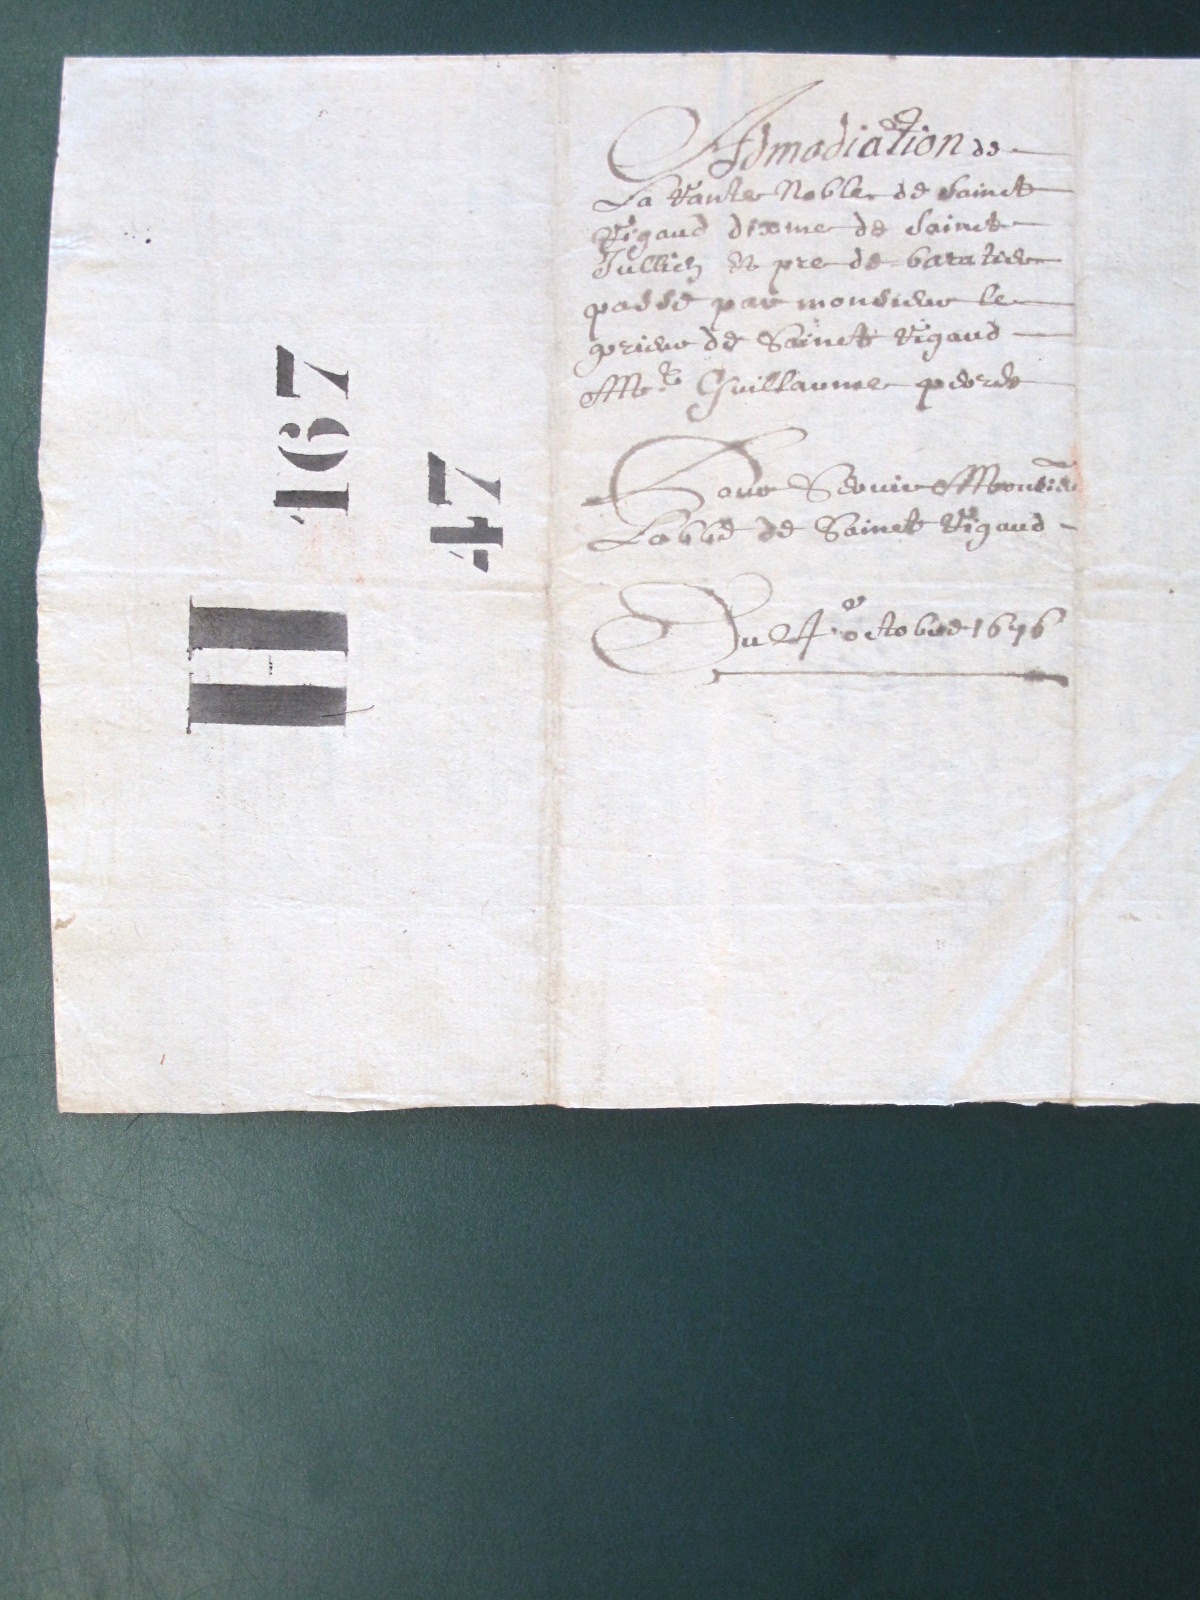 H 167
47
Admodiation de
La Rante Noble de Sainct
Rigaud dixme de Sainct
Jullien & pre de baratier
passé par monsieur le
prieur de Sainct Rigaud
Me Guillaume
Pour Servir A Monsieur
Labbé de Sainct Rigaud
Du 24e octobre 1676